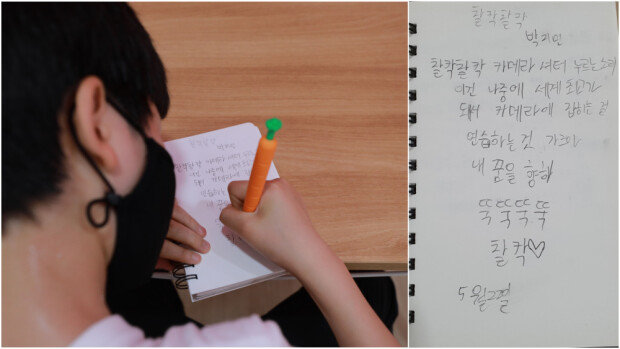 찰칵찰칵
박지민
찰칵찰칵 카메라 셔터 누르는 소리
이건 나중에 세계 최고가
돼서 카메라에 잡히는 걸
연습하는 건
내 꿈을 향해
뚝 뚝 뚝 뚝
찰칵♡
5월2일